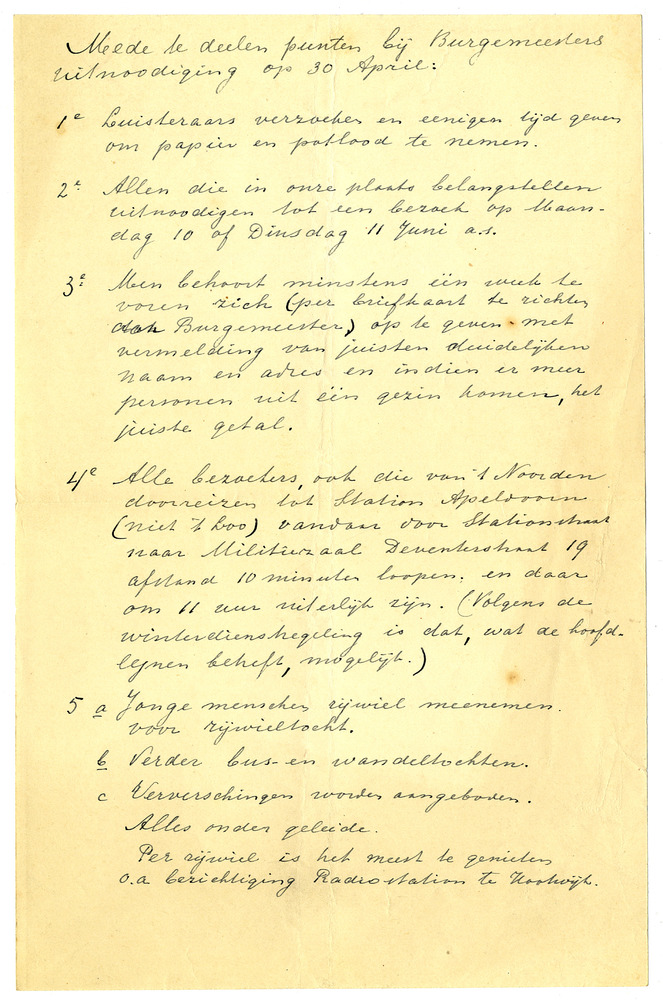 Mede te deelen punten bij Burgemeesters
uitnoodiging op 30 April:
1e Luisteraars verzoeken en eenigen tijd geven
om papier en potlood te nemen.
2e Allen die in onze plaats belangstellen
uitnoodigen tot een bezoek op Maan-
dag 10 of Dinsdag 11 Juni a.s.
3e Men behoort minstens één week te
voren zich (per briefkaart te richten
aan Burgemeester) op te geven met
vermelding van juisten duidelijken
naam en adres en indien er meer
personen uit één gezin komen, het
juiste getal.
4e Alle bezoekers, ook die van 't Noorden
doorreizen tot Station Apeldoorn
(niet 't Loo) vandaar door Stationstraat
naar Militiezaal Deventerstraat 19
afstand 10 minuten loopen. en daar
om 11 uur uiterlijk zijn. (Volgens de
winterdienstregeling is dat, wat de hoofd-
lijnen betreft, mogelijk.)
5 a Jonge menschen rijwiel meenemen.
voor rijwieltocht.
b Verder bus- en wandeltochten.
c Ververschingen worden aangeboden.
Alles onder geleide.
Per rijwiel is het meest te genieten
o.a bezichtiging Radiostation te Kootwijk.